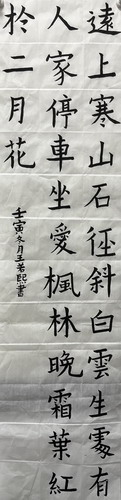 遠上寒山石径斜白雲生處有
人家停車坐愛楓林晚霜葉紅
於二月花
壬寅冬月王若熙書